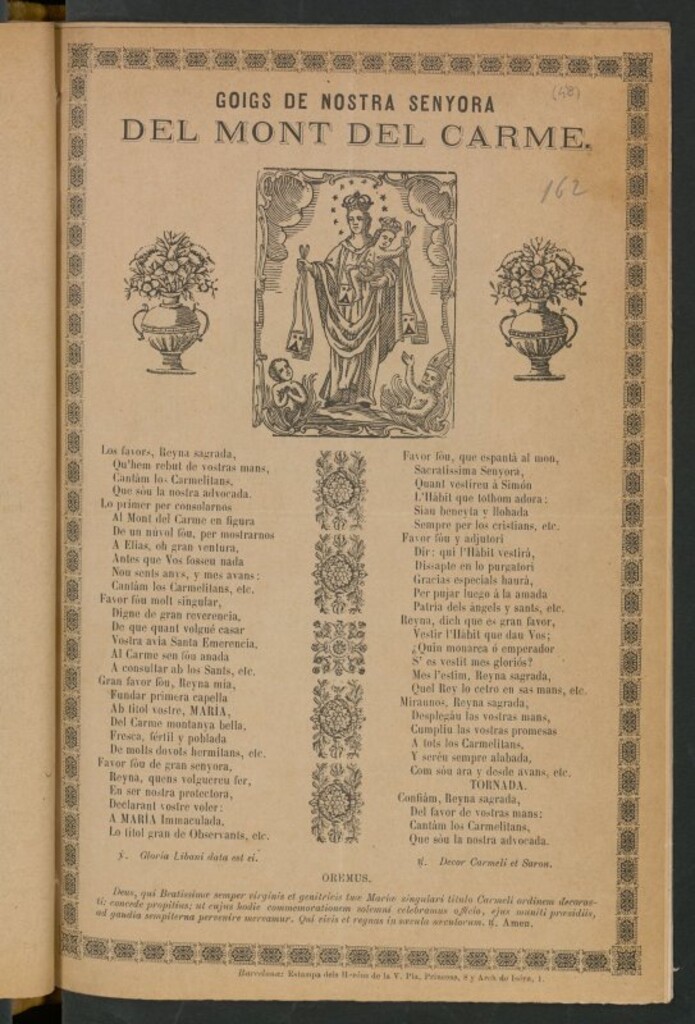 GOIGS DE NOSTRA SENYORA
(48)
DEL MONT DEL CARME.
162
Los favors, Reyna sagrada,
Qu'hem rebut de vostras mans,
Cantám los Carmelitans,
Que sòu la nostra advocada.
Lo primer per consolarnos
Al Mont del Carme en figura
De un núvol fóu, per mostrarnos
A Elias, oh gran ventura,
Antes que Vos fosseu nada
Nou sents anys, y mes avans:
Cantám los Carmelitans, etc.
Favor fóu molt singular,
Digne de gran reverencia,
De que quant volgué casar
Vostra avia Santa Emerencia,
Al Carme sen fóu anada
A consultar ab los Sants, etc.
Gran favor fóu, Reyna mia,
Fundar primera capella
Ab titol vostre, MARIA,
Del Carme montanya bella,
Fresca, fértil y poblada
De molts devots hermitans, etc.
Favor fóu de gran senyora,
Reyna, quens volguereu fer,
En ser nostra protectora,
Declarant vostre voler:
A MARIA Immaculada,
Lo titol gran de Observants, etc.
℣. Gloria Libani data est ei.
Favor fóu, que espantá al mon,
Sacratissima Senyora,
Quant vestireu á Simón
L'Hábit que tothom adora:
Siau beneyta y llohada
Sempre per los cristians, etc.
Favor fóu y adjutori
Dir: qui l'Hábit vestirá,
Dissapte en lo purgatori
Gracias especials haurá,
Per pujar luego á la amada
Patria dels ángels y sants, etc.
Reyna, dich que es gran favor,
Vestir l'Hábit que dau Vos;
¿Quin monarca ó emperador
S' es vestit mes gloriós?
Mes l'estim, Reyna sagrada,
Quel Rey lo cetro en sas mans, etc.
Miraunos, Reyna sagrada,
Desplegáu las vostras mans,
Cumpliu las vostras promesas
A tots los Carmelitans,
Y seréu sempre alabada,
Com sóu ara y desde avans, etc.
TORNADA.
Confiám, Reyna sagrada,
Del favor de vostras mans:
Cantám los Carmelitans,
Que sóu la nostra advocada.
℟. Decor Carmeli et Saron.
OREMUS.
Deus, qui Beatissimæ semper virginis et genitricis tuæ Mariæ singulari titulo Carmeli ordinem decoras-
ti: concede propitius; ut cujus hodie commemorationem solemni celebramus officio, ejus muniti præsidiis,
ad gaudia sempiterna pervenire mereamur. Qui vivis et regnas in sæcula sæculorum. ℟. Amen.
Barcelona: Estampa dels Hereus de la V. Pla, Princesa, 8 y Arch de Isern, 1.